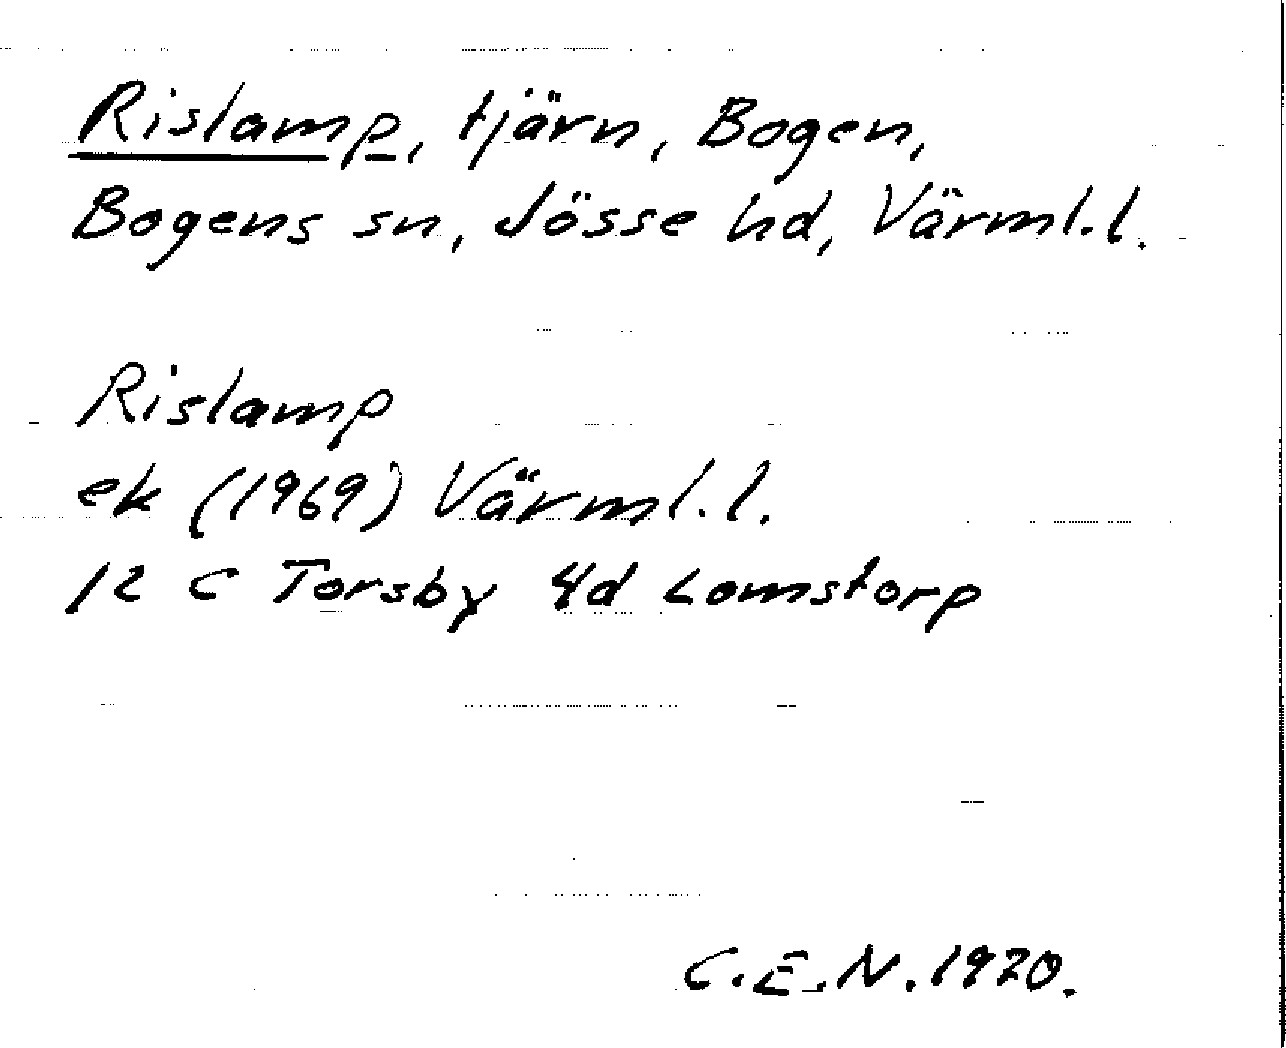 Rislamp, tjärn, Bogen,
Bogens sn, Jösse hd, Värml.l.
Rislamp
ek (1969) Värml.l.
12 C Torsby 4d Lomstorp
C.E.N. 1970.